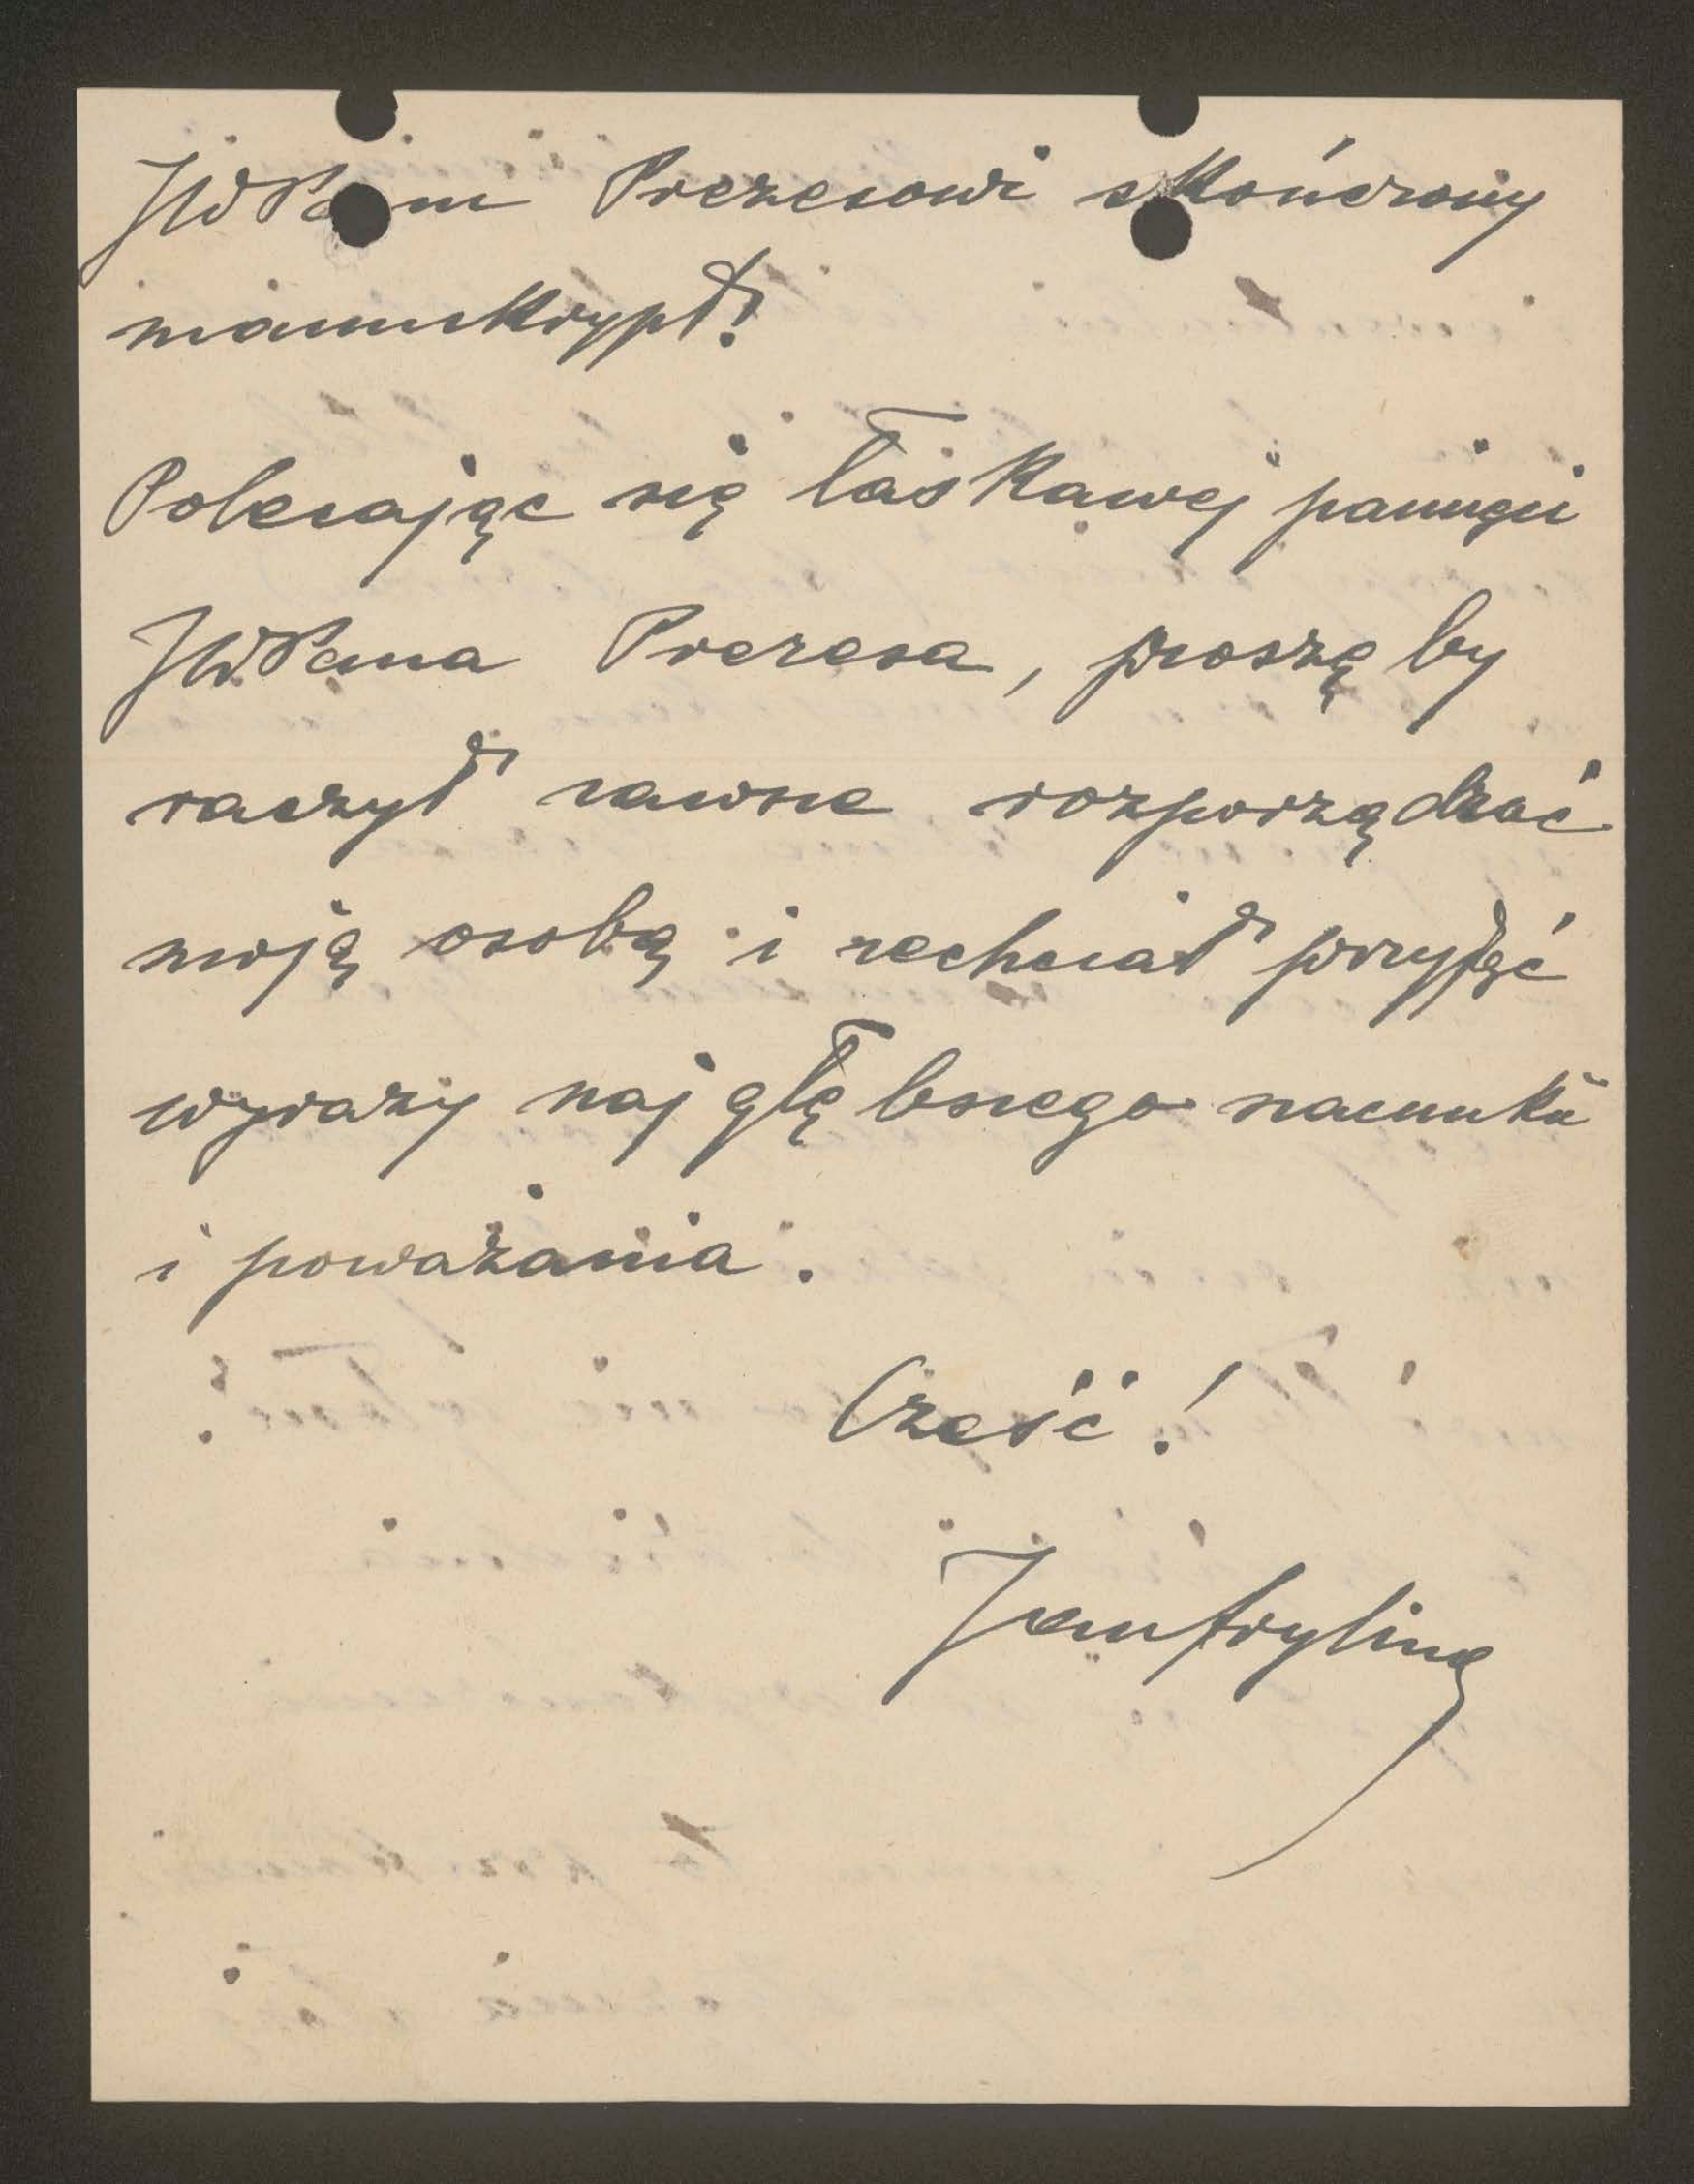 JWPanu Prezesowi skończony
manuskrypt!
Polecając się łaskawej pamięci
JWPana Prezesa, proszę by
raczył zawsze rozporządzać
moją osobą i zechciał przyjąć
wyrazy najgłębszego szacunku
i poważania.
Cześć!
Jan Fryling